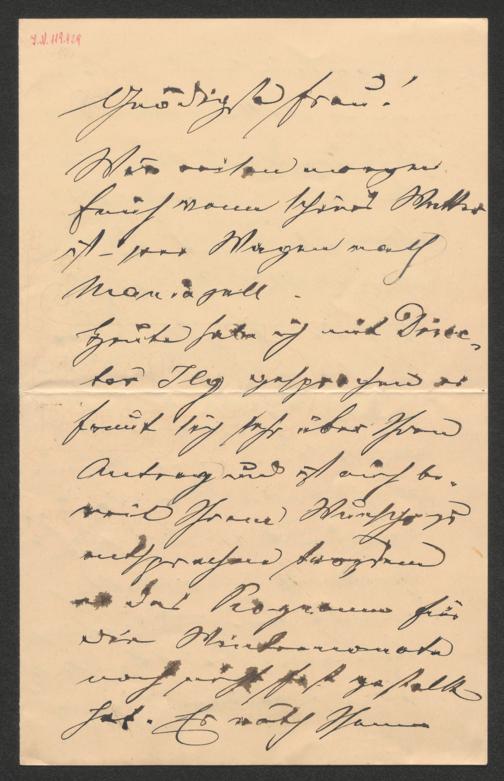 J.N. 119.129
Gnädigste Frau!
Wir reisen morgen
früh wenn schönes Wetter
ist – per Wagen nach
Mariazell.
Heute habe ich mit Direc-
tor Ilg gesprochen er
freut sich sehr über Ihren
Antrag und ist auch be-
reit Ihrem Wunsche zu
entsprechen trotzdem
er das Programm für
die Wintermonate
noch nicht fest gestellt
hat. Er räth Ihnen